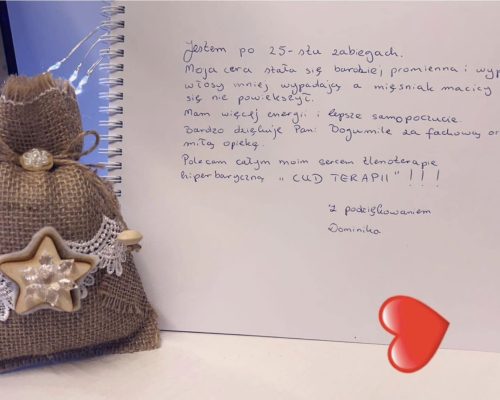 Jestem po 25-stu zabiegach.
Moja cera stała się bardziej promienna i
włosy mniej wypadają a mięśniak macicy
się nie powiększył.
Mam więcej energii i lepsze samopoczucie.
Bardzo dziękuję Pani Bogumile za fachową
miłą opiekę.
Polecam całym moim sercem tlenoterapię
hiperbaryczną „CUD TERAPII" ! ! !
Z podziękowaniem
Dominika